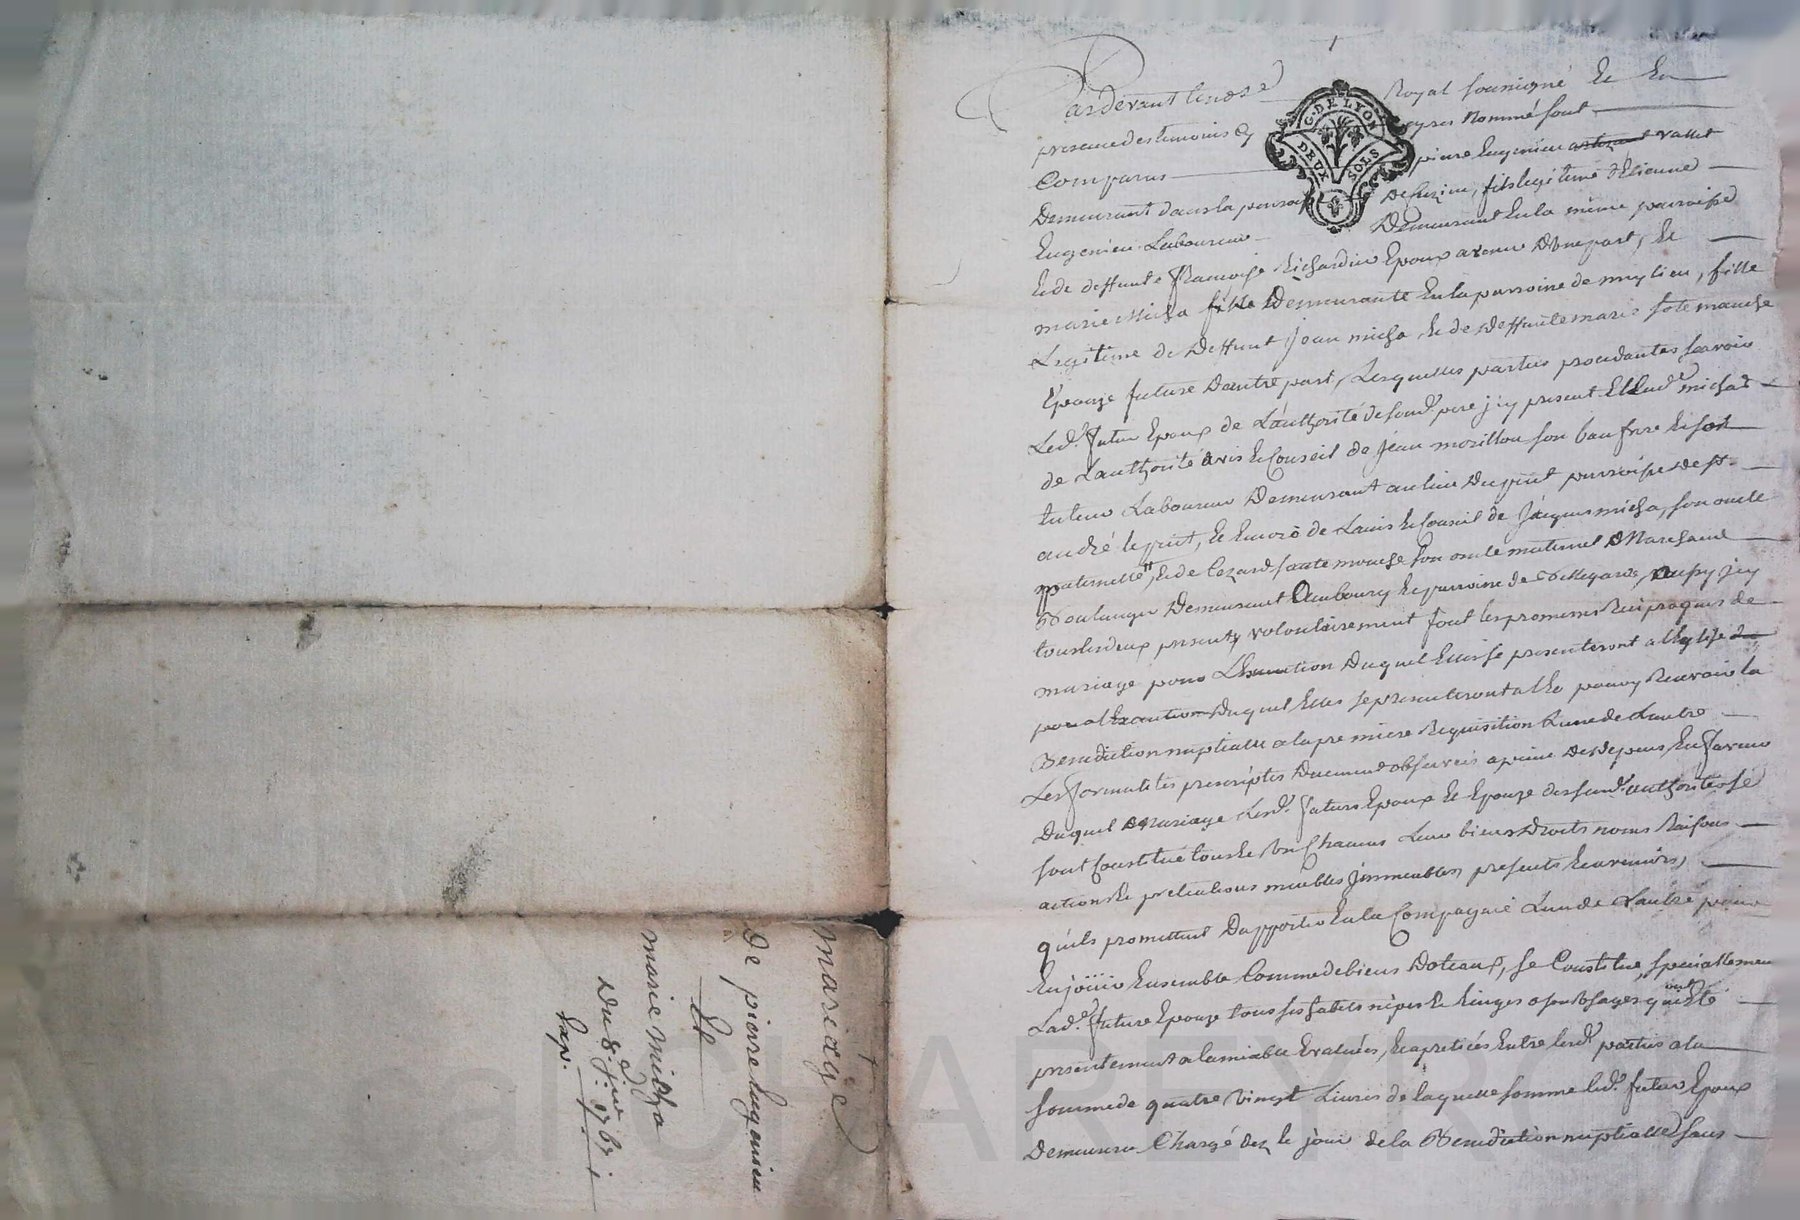 G. DE LYON
DEUX SOLS
Pardevant le nore Royal soussigné Et En
presence des temoins cy apres Nommé sont
Comparus pierre Eugenieu vallet
Demeurant dans la parroisse De Cuzieu, fils legitime d'Etienne
Eugenieu Laboureur Demeurant En la même parroisse
Et de deffunte françoise Richardier Epoux avenir D'une part, Et
marie Micha fille Demeurante En la parroisse de meylieu, fille
Legitime de Deffunt jean micha Et de Deffunte marie sote mouche
Epouze future D'autre part, Lesquelles parties procedantes sçavoir
Led. futur Epoux de L'authorité de sond. pere jcy present Et Lad. micha
de L'authorité avis Et Conseil de jean morillon son beau frere
tuteur Laboureur Demeurant au lieu Du puit parroisse de st.
andré le puit, Et Encore de Lavis Et Conseil de jacques micha, son oncle
paternelle, Et de sautemouche son oncle maternel Marchand
Boulanger Demeurant Au bourg Et parroisse de Bellegarde, aussy jcy
tous les deux presents volontairement font les promesses Reciproques de
mariage pour L'Execution Duquel Elles se presenteront a l'Eglise
pour l'Execution Duquel Elles se presenteront a l'Eg pour y Recevoir la
Benediction nuptialle a la premiere Requisition L'une de L'autre
Les formalites prescriptes Duement observeés a peine De depens, En faveur
Duquel Mariage Lesd. futurs Epoux Et Epouze de susd. authorités se
sont Constitué tous Et Un Chacuns Leur biens Droits noms Raisons
actions Et pretentions meubles jmmeubles presents Et avenirs,
qu'ils promettent D'apporter En la Compagnie L'un de L'autre pour
En joüir Ensemble Comme de biens Doteaux, se Constitue, speciallement
Lad. future Epouze tous ses habits nipes Et linges a son Usages qui ont Eté
presentement a lamiable Evaluées, Et apretiées Entre lesd. parties a la
somme de quatre Vingt Livres de laquelle somme led. futur Epoux
Demeurera Chargé dez le jour de la Benediction nuptialle sans
mariage
De pierre Eugenieu
Et
marie micha
Du 8
Exp.
CHAREYRON